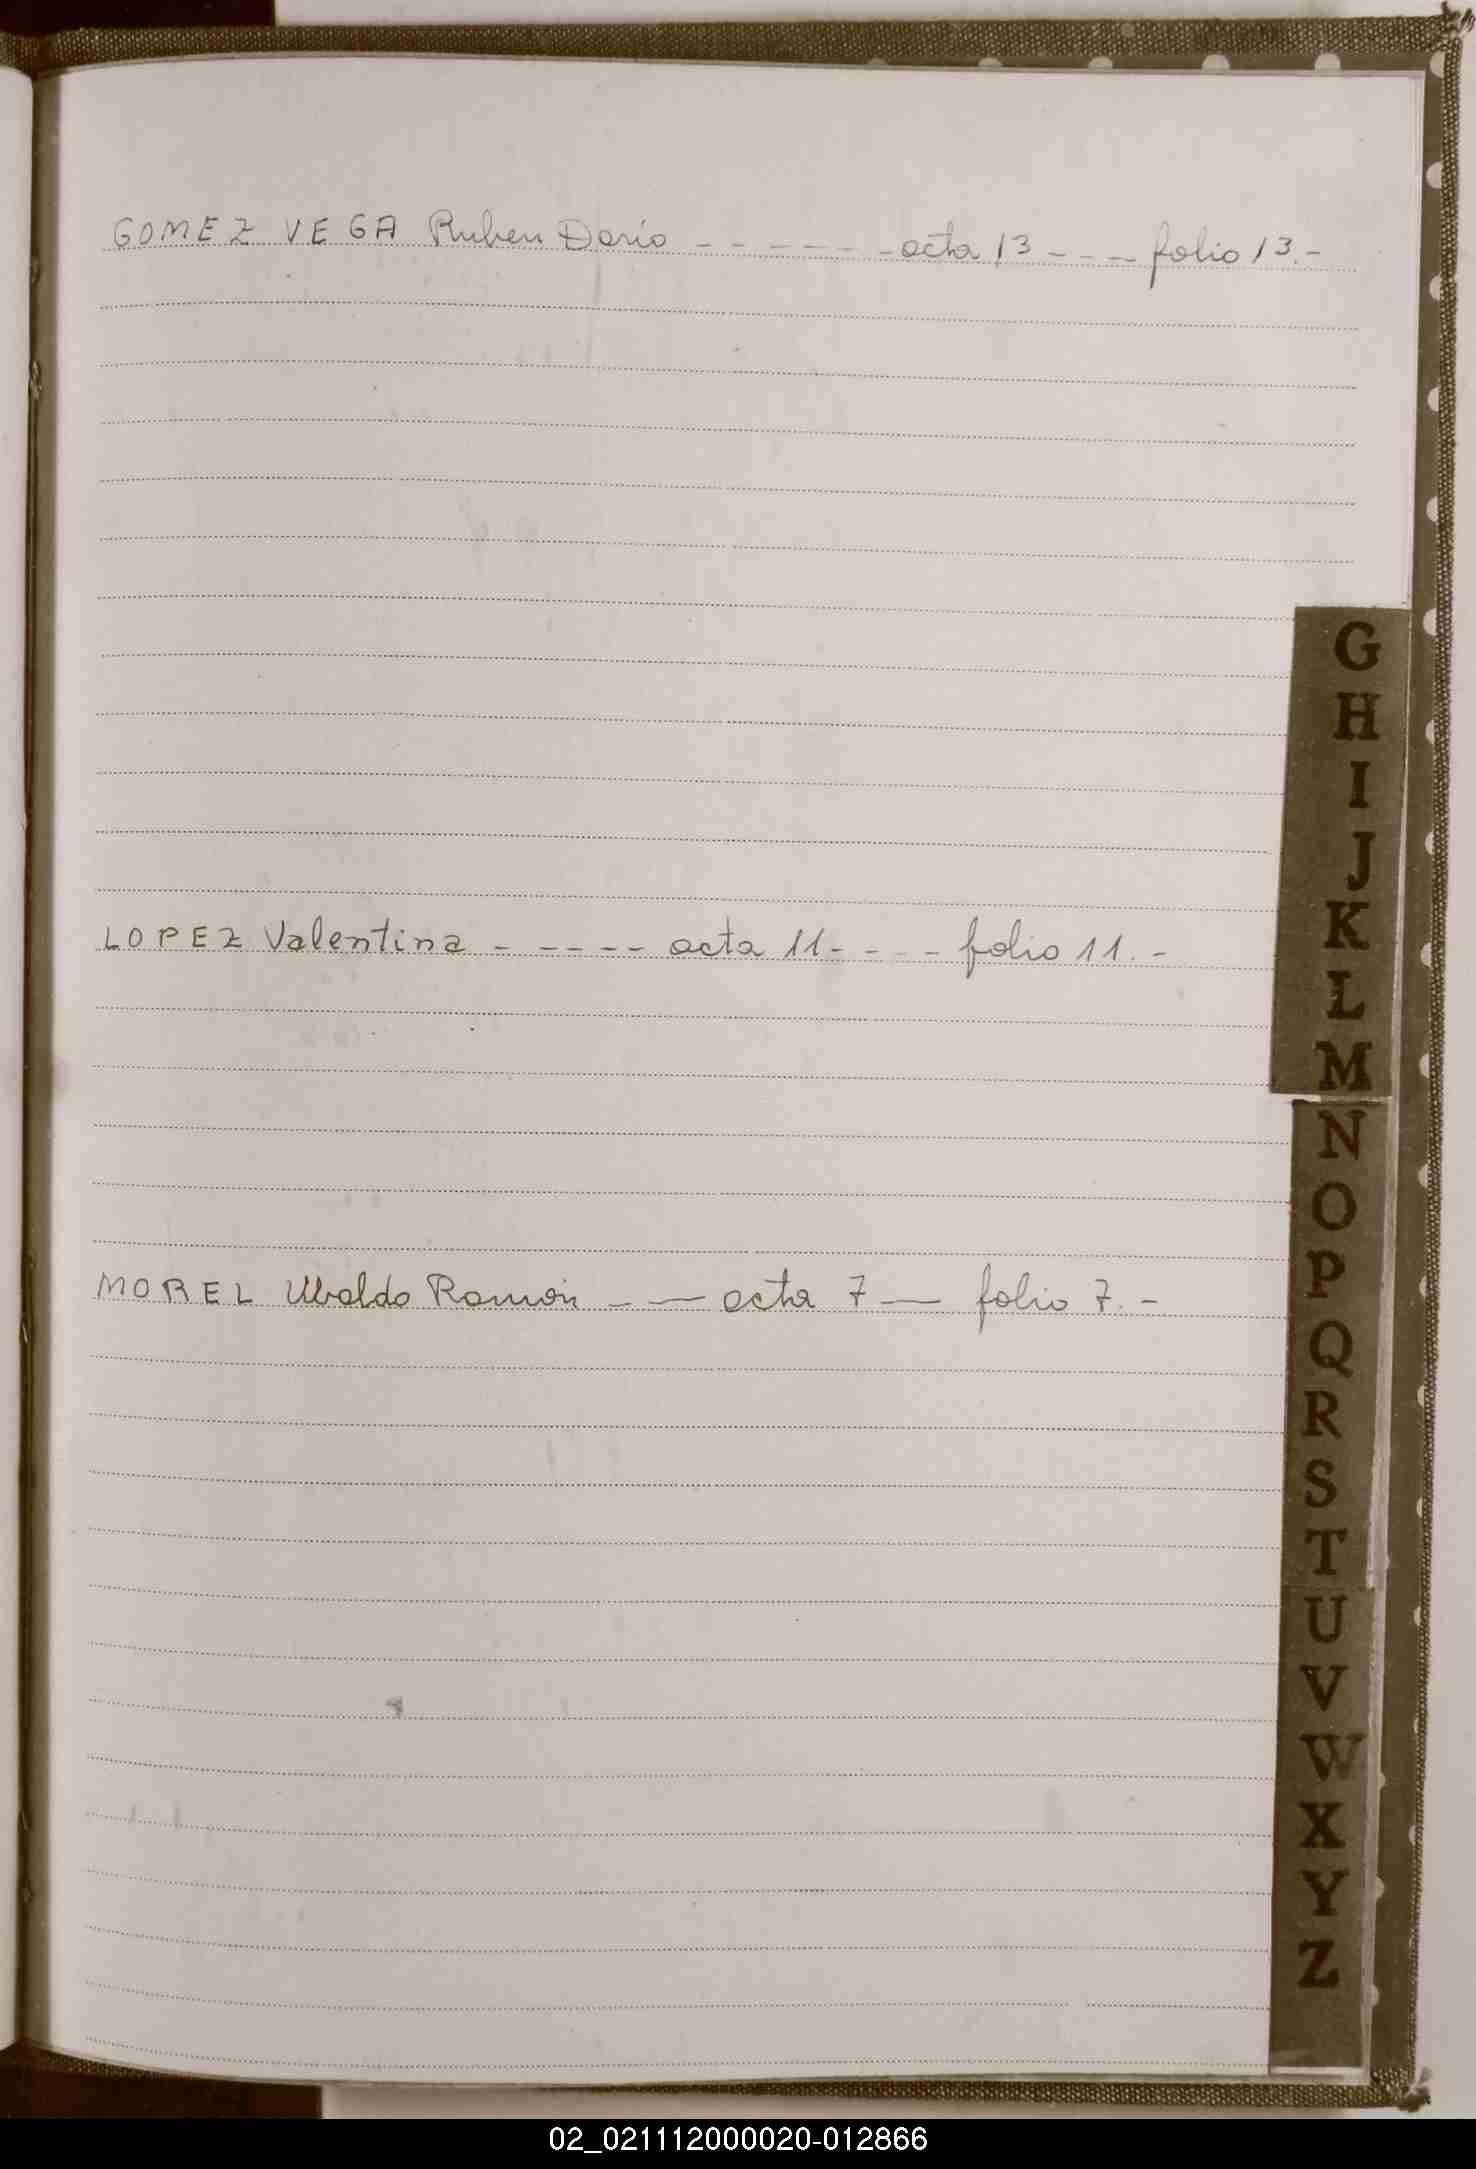 GOMEZ VEGA Ruben Dario - - - - - - - acta 13 - - - - folio 13.-
G
H
I
J
K
LOPEZ Valentina - - - - - acta 11 - - - - folio 11. -
L
M
N
O
P
MOREL Ubaldo Ramón - — acta 7 — folio 7. -
Q
R
S
T
U
V
W
X
Y
Z
02_021112000020-012866